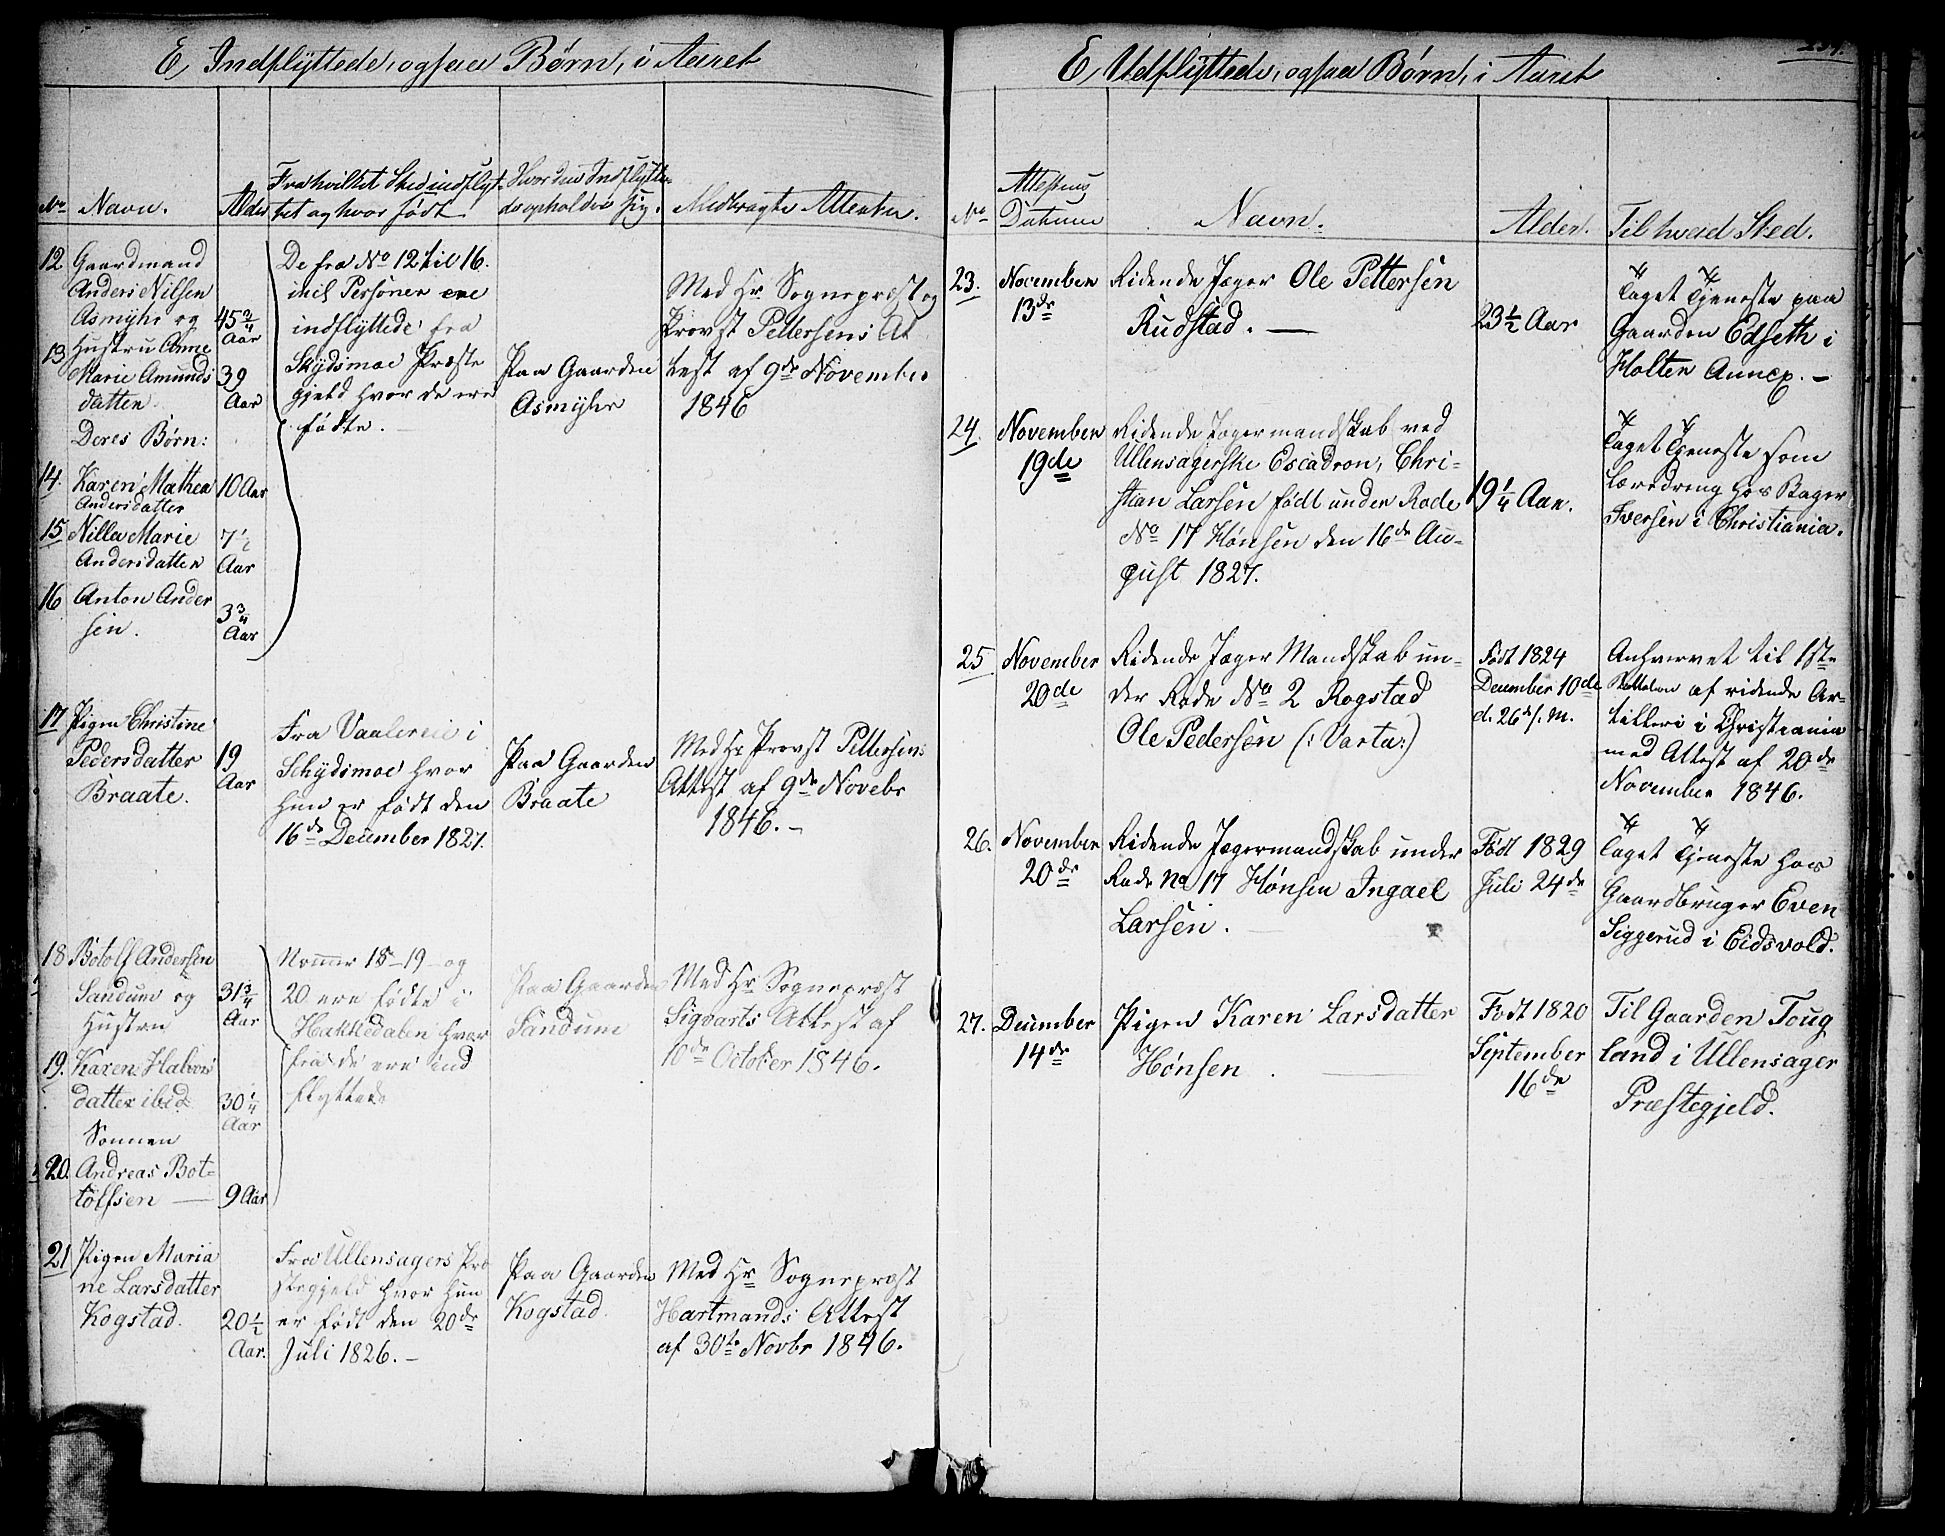 E Indflyttede, ogsaa Børn, i Aaret
No
Navn.
Alder
Fra hvilket Sted indflyt-
tet og hvor født
Hvor den Indflytte-
de opholder sig.
Medbragte Attester.
12
Gaardmand
Anders Nilsen
Asmyhr og
45 3/4
Aar
13
Hustru Anne
Marie Amunds
datter.
39
Aar
Deres Børn:
14.
Karen Mathea
Andersdatter
10 Aar
15
Nille Marie
Andersdatter
7 1/2
Aar
16
Anton Ander
sen.
3 3/4
Aar
De fra No 12 til 16.
incl Personer ere
indflyttede fra
Skydsmoe Præste
gjeld hvor de ere
fødte.
Paa Gaarden
Asmyhr
Med Hr Sognepræst og
Provst Pettersens At
test af 9de November
1846
17
Pigen Christine
Pedersdatter
Braate.
19
Aar
Fra Vaalereie i
Schydsmoe hvor
hun er født den
16de December 1827.
Paa Gaarden
Braate
Med Hr Provst Pettersens
Attest af 9de Novebr
1846. -
18
Botolf Andersen
Sandum og
Hustru
31 3/4
Aar
19.
Karen Halvors
datter ibid
30 1/4
Aar
Sønnen
20.
Andreas Bot-
tolfsen —
9 Aar
Nommer 18-19- og
20 ere fødte i
Hakkedalen hvor
fra de ere ind
flyttede
Paa Gaarden
Sandum
Med Hr Sognepræst
Sigvarts Attest af
10de October 1846.
21
Pigen Maria
ne Larsdatter
Kogstad.
20 1/2
Aar.
Fra Ullensagers Præ
stegjeld hvor hun
er født den 20de
Juli 1826. -
Paa Gaarden
Kogstad.
Med Hr Sognepræst
Hartmands Attest
af 30te Novbr 1846.
E Udflyttede, ogsaa Børn, i Aaret
No
Attestens
Datum
Navn.
Alder.
Til hvad Sted.
23.
November
13de
Ridende Jæger Ole Pettersen
Rudstad. —
23 1/2 Aar
Taget Tjeneste paa
Gaarden Edseth i
Holter Annex. -
24.
November
19de
Ridende Jægermandskab ved
Ullensagerske Escadron, Chri-
stian Larsen født under Rode
No 17 Hønsen den 16de Au-
gust 1827.
19 1/4 Aar.
Taget Tjeneste som
Læredreng hos Bager
Iversen i Christiania.
25
November
20de
Ridende Jæger Mandskab un-
der Rode No 2 Rogstad
Ole Pedersen (: Varta:)
Født 1824
December 10de
d. 26 s. M.
Anhvervet til 1ste
af ridende Ar-
tilleri i Christiania
med Attest af 20de
November 1846.
26.
November
20de
Ridende Jægermandskab under
Rode No 17 Hønsen Ingael
Larsen.
Født 1829
Juli 24de
Taget Tjeneste hos
Gaardbruger Even
Siggerud i Eidsvold.
27.
December
14de
Pigen Karen Larsdatter
Hønsen.
Født 1820
September
16de
Til Gaarden Toug
land i Ullensager
Præstegjeld.